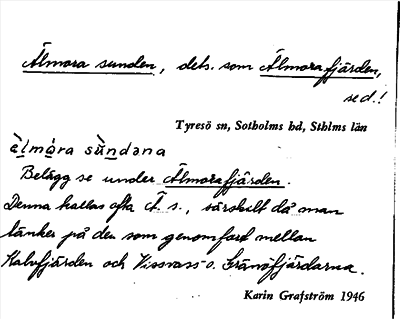 Älmora sunden, dets. som Älmorafjärden,
se d.!
Tyresö sn, Sotholms hd, Sthlms län
àlmȯra sùndəna
Belägg se under Älmorafjärden.
Denna kallas ofta Ä. s., särskilt då man
tänker på den som genomfart mellan
Kalvfjärden och Vissvass- o. Gränöfjärdarna.
Karin Grafström 1946